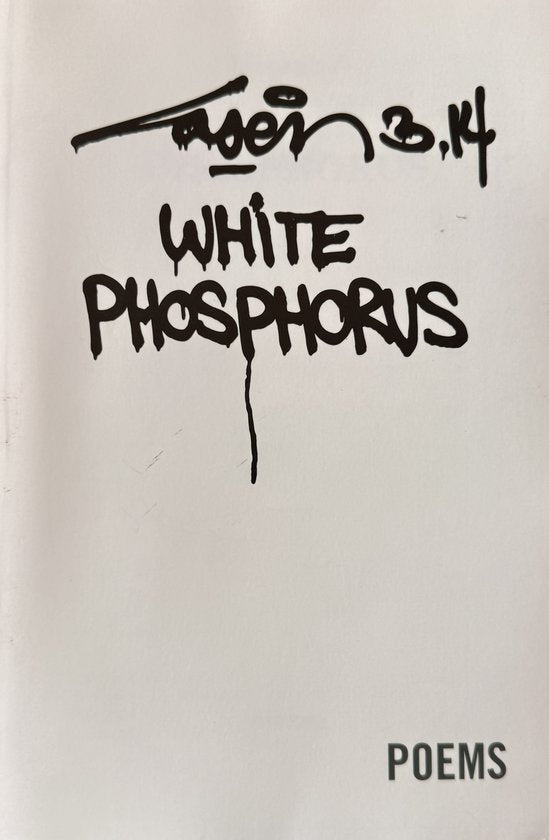 Laser 3.14
WHiTE
PHOSPHORUS
POEMS